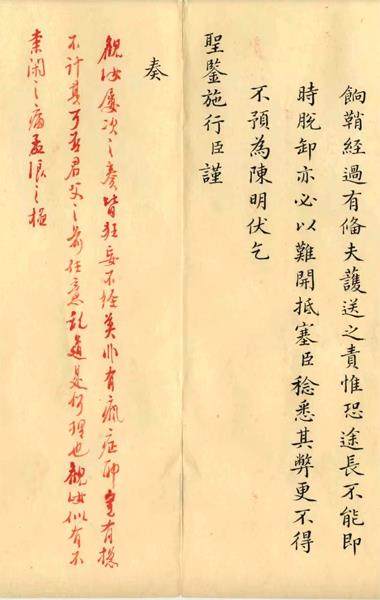 餉鞘經過有俻夫護送之責惟恐途長不能即
時脫卸亦必以難開抵塞臣稔悉其弊更不得
不預為陳明伏乞
聖鑒施行臣謹
奏
觀汝屢次之奏皆狂妄不經莫非有瘋症耶豈有總
不計其可否君父之前任意亂道是何理也觀汝似有不
柰閑之病孟浪之極